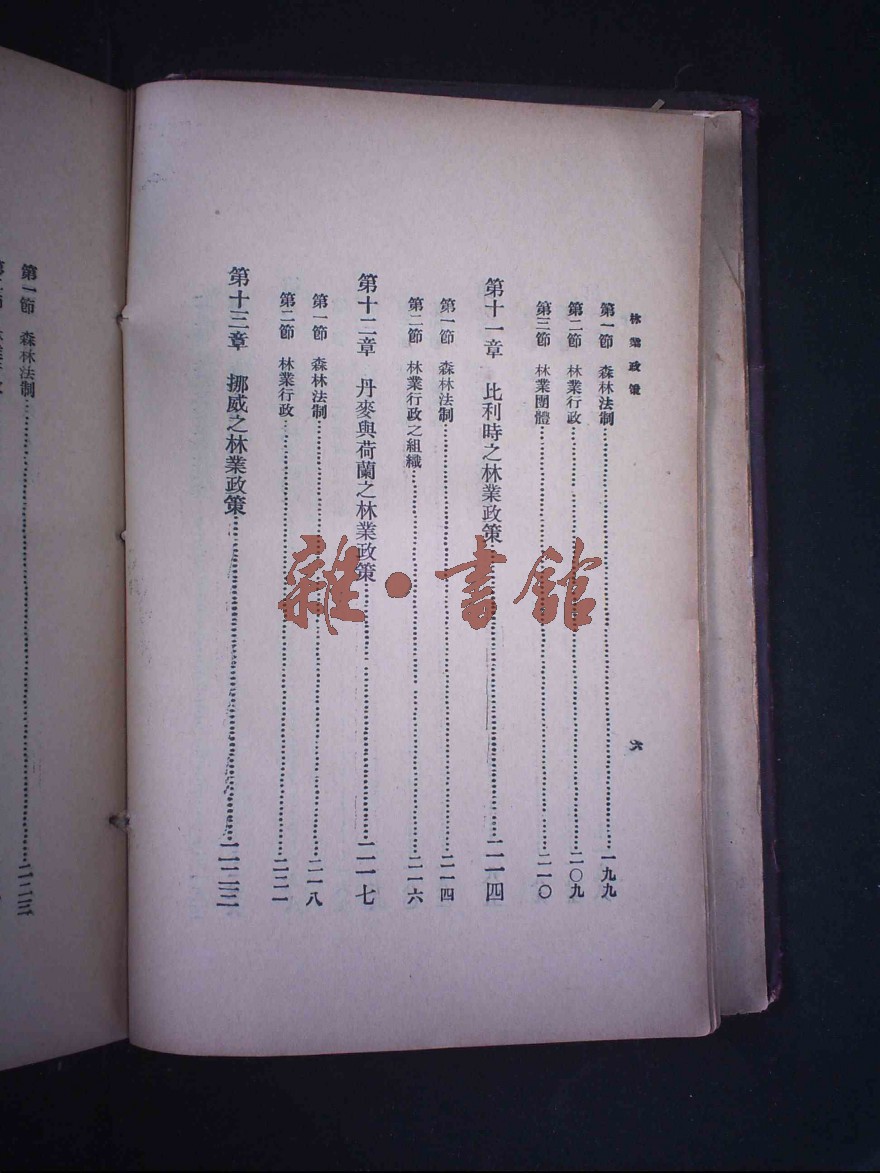 林業政策
六
第一節 森林法制……一九九
第二節 林業行政……二〇九
第三節 林業團體……二一〇
第十一章 比利時之林業政策……二一四
第一節 森林法制……二一四
第二節 林業行政之組織……二一六
第十二章 丹麥與荷蘭之林業政策……二一七
第一節 森林法制……二一八
第二節 林業行政……二二一
第十三章 挪威之林業政策……二二三
第一節 森林法制……二二三
雜·書館